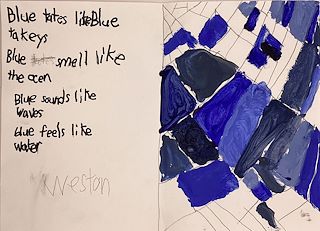 Blue tates like Blue
takeys
Blue smell like
the ocen
Blue sounds like
waves
blue feels like
water
Weston